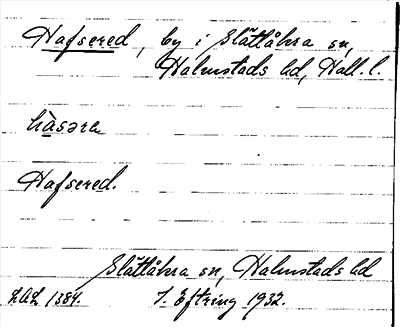 Hafsered, by i Slättåkra sn,
Halmstads hd, Hall. l.
hàsəra
Hafsered.
Slättåkra sn, Halmstads hd
LAL 1384. J. Eftring 1932.